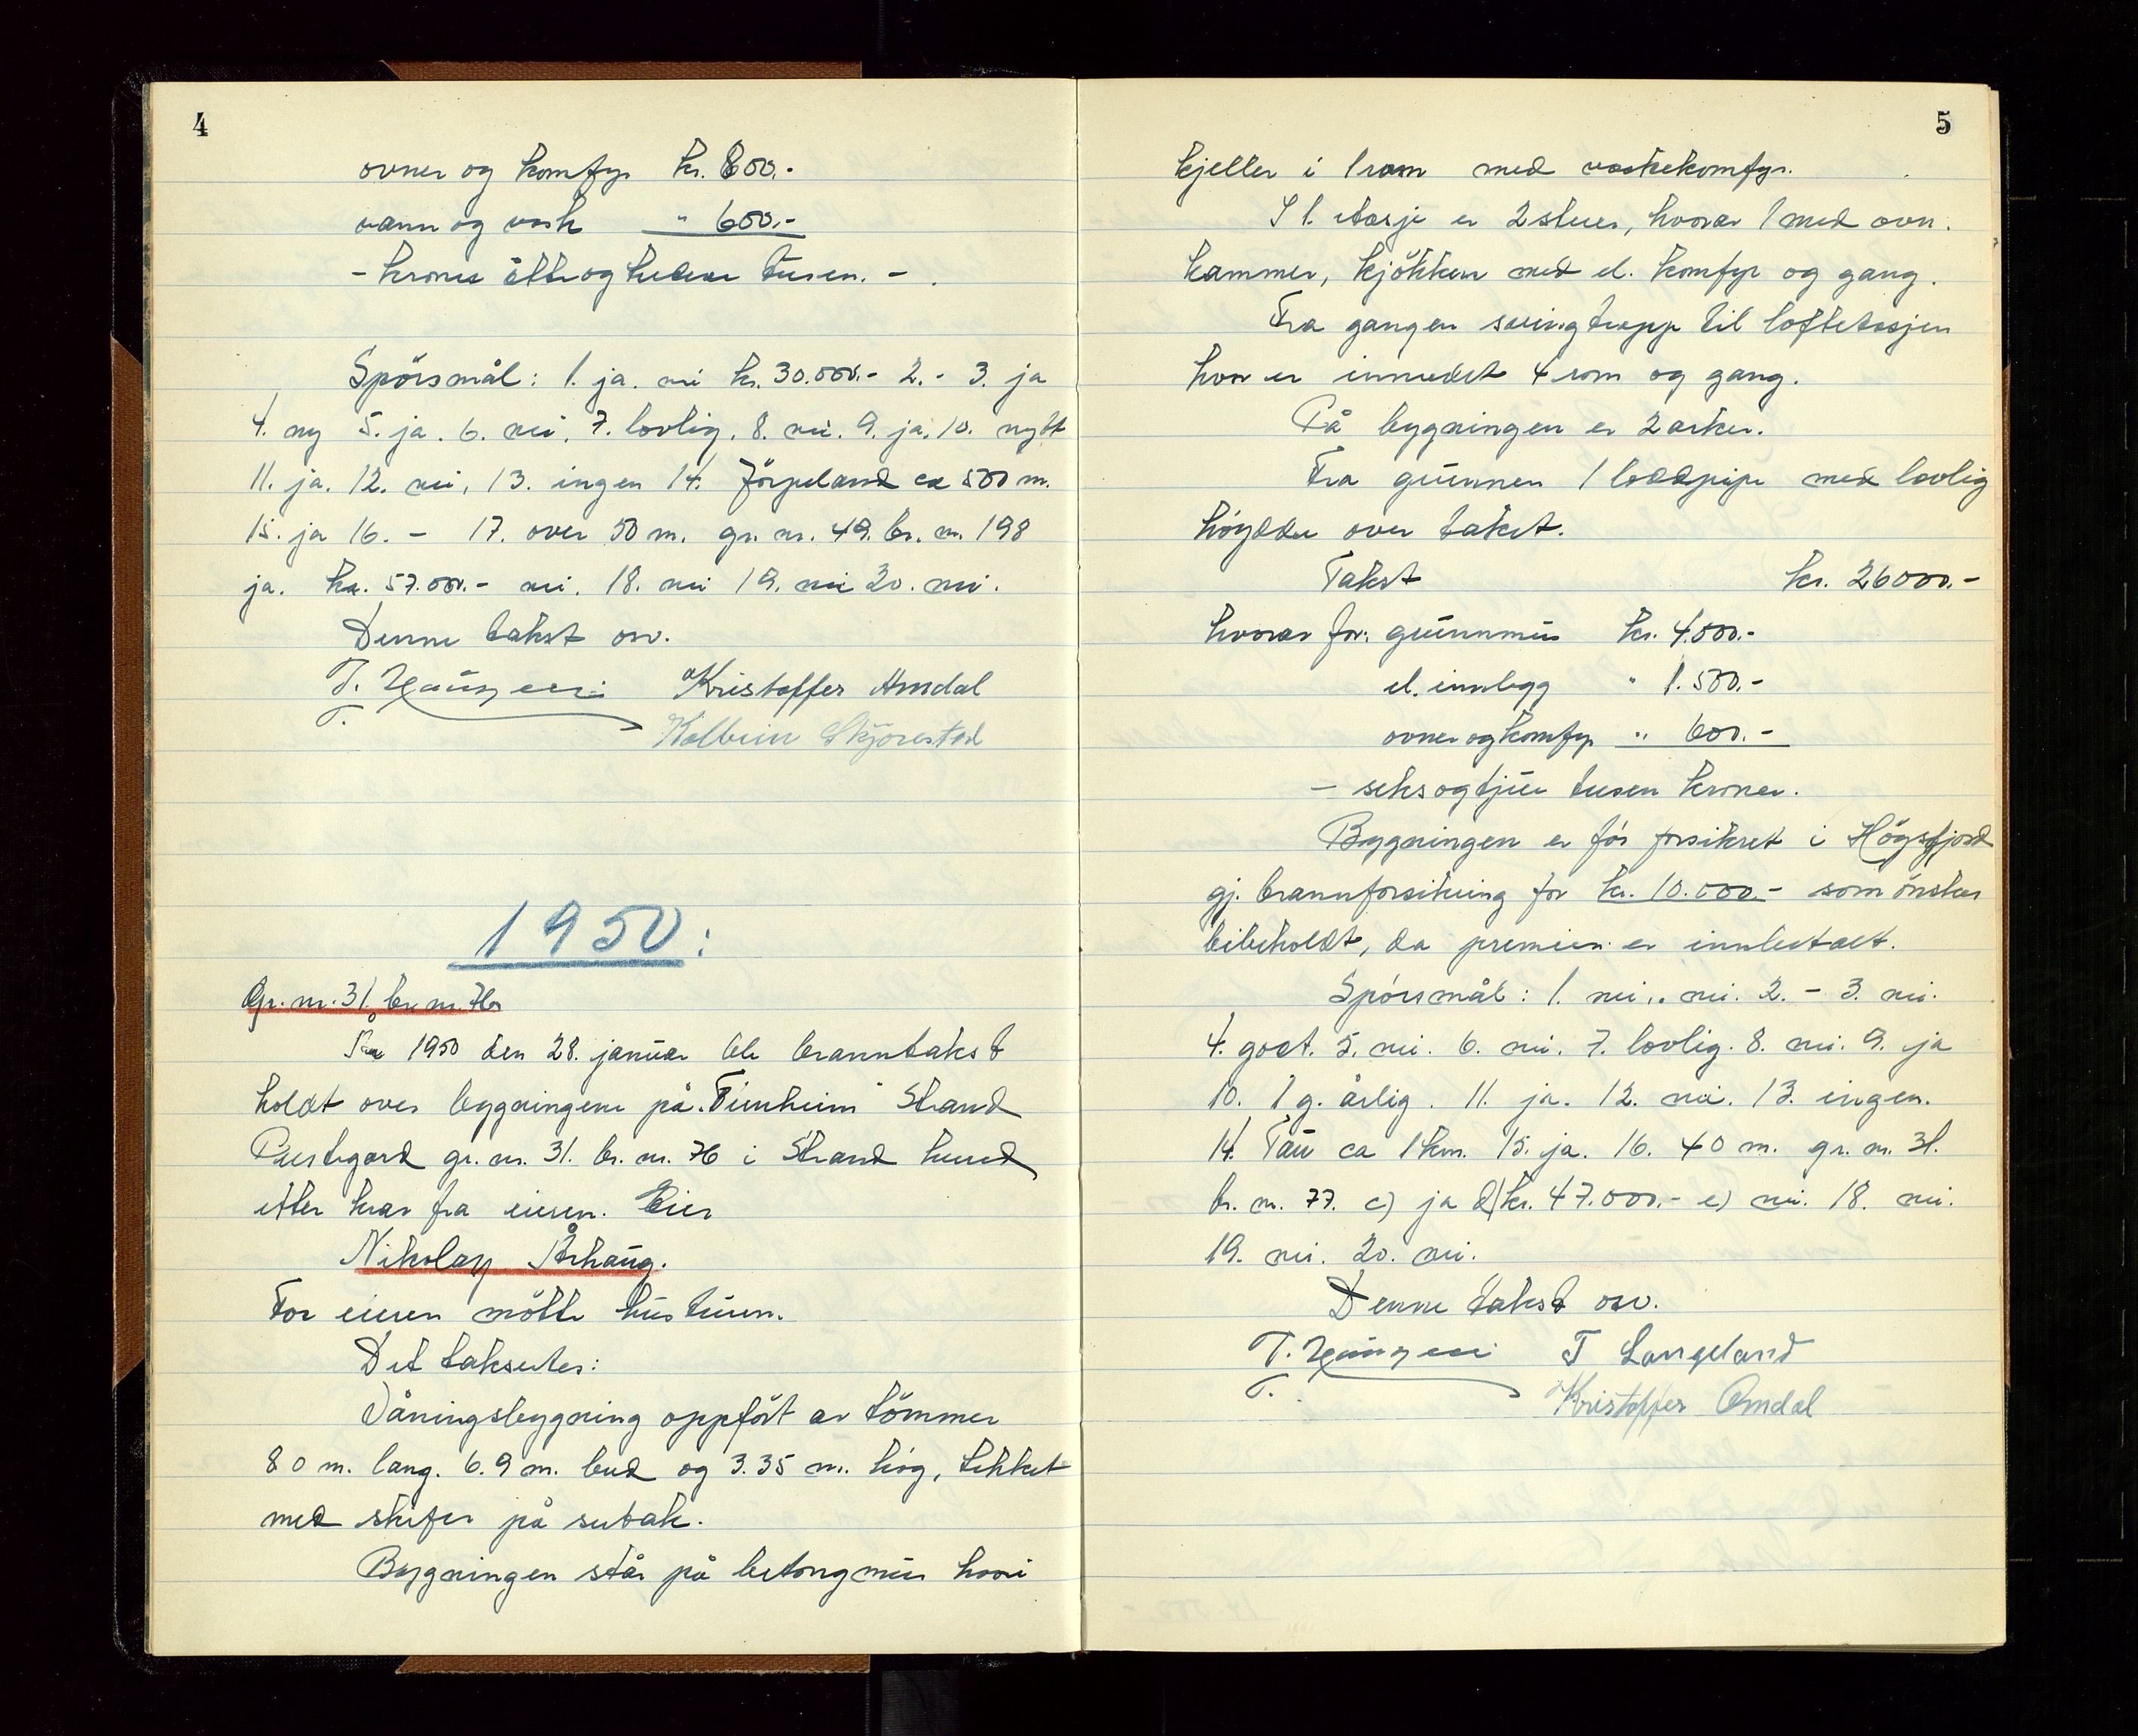 4
ovner og komfyr kr. 800.-
vann og vask " 600.-
- kroner åtteogtredve tusen. -
Spörsmål: 1. ja. nei kr. 30.000.- 2. - 3. ja
4. ny 5. ja. 6. nei. 7. lovlig. 8. nei. 9. ja. 10. nytt
11. ja. 12. nei, 13. ingen 14. Jörpeland ca 500 m.
15. ja 16. - 17. over 50 m. gr. nr. 49. br. nr. 198
ja. kr. 57.000.- nei. 18. nei 19. nei 20. nei.
Denne takst osv.
T. Haugen Kristoffer Amdal
T.
Kolbein Skjörestad
1950:
Gr. nr. 31. br. nr. 76
År 1950 den 28. januar ble branntakst
holdt over bygningene på "Tunheim" Strand
Prestegard gr. nr. 31. br. nr. 76 i Strand herred
etter krav fra eieren. Eier
Nikolay Århaug.
For eieren mötte hustruen.
Det takseres:
Våningsbygning oppfört av tömmer
8.0 m. lang. 6.9 m. bred og 3.35 m. høg, tekket
med skifer på sutak.
Bygningen står på betongmur hvori
5
kjeller i 1 rom med vaskekomfyr.
I 1. etasje er 2 stuer, hvorav 1 med ovn.
kammer, kjökken med el. komfyr og gang.
Fra gangen svingtrapp til loftetasjen
hvor er innredet 4 rom og gang.
På bygningen er 2 arker.
Fra grunnen 1 loddpipe med lovlig
høydde over taket.
Takst kr. 26000.-
hvorav for: grunnmur kr. 4.000.-
el. innlegg " 1.500.-
ovner og komfyr " 600.-
- seksogtjue tusen kroner.
Bygningen er för forsikret i Högsfjord
gj. brannforsikring for kr. 10.000.- som önskes
bibeholdt, da premien er innbetalt.
Spörsmål: 1. nei,. nei. 2. - 3. nei.
4. godt. 5. nei. 6. nei. 7. lovlig. 8. nei. 9. ja
10. 1 g. årlig. 11. ja. 12. nei. 13. ingen.
14. Tau ca 1 km. 15. ja. 16. 40 m. gr. nr. 31.
br. nr. 77. c) ja d) kr. 47.000.- e) nei. 18. nei.
19. nei. 20. nei.
Denne takst osv.
T. Haugen T Langeland
T.
Kristoffer Omdal